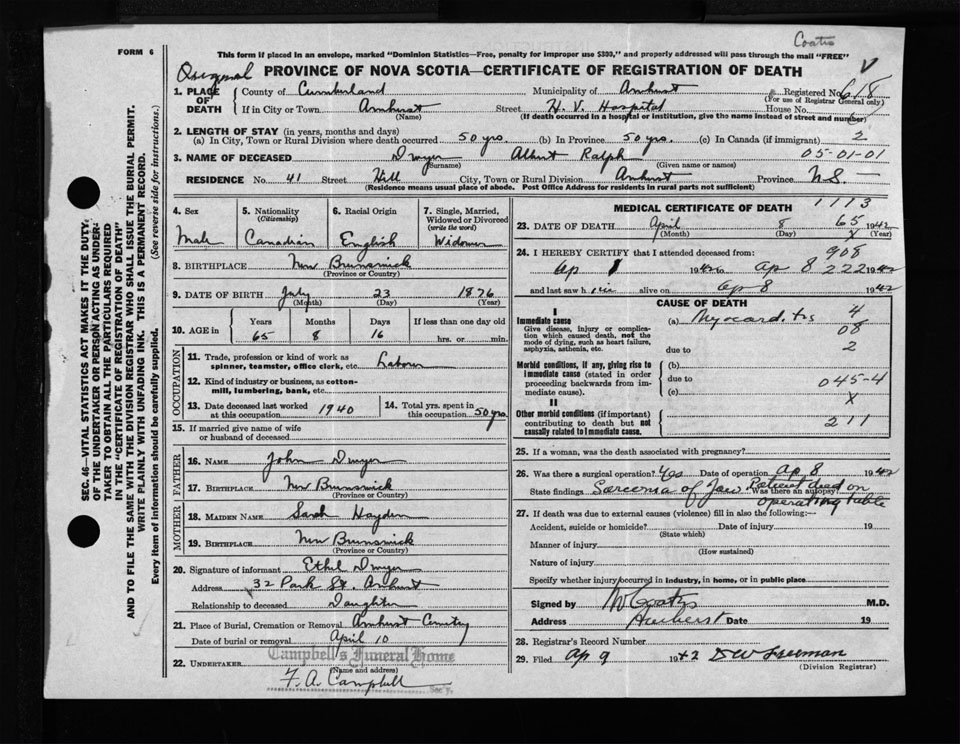 Coats
FORM 6
This form if placed in an envelope, marked "Dominion Statistics—Free, penalty for improper use $300," and properly addressed will pass through the mail "FREE"
Original
PROVINCE OF NOVA SCOTIA—CERTIFICATE OF REGISTRATION OF DEATH
1. PLACE OF DEATH County of Cumberland Municipality of Amherst Registered No. 618
(For use of Registrar General only)
If in City or Town Amherst Street H. V. Hospital House No.
(Name) (If death occurred in a hospital or institution, give the name instead of street and number)
2. LENGTH OF STAY (in years, months and days)
(a) In City, Town or Rural Division where death occurred 50 yrs. (b) In Province 50 yrs. (c) In Canada (if immigrant) 2
3. NAME OF DECEASED Dwyer Albert Ralph 05-01-01
(Surname) (Given name or names)
RESIDENCE No. 41 Street Hill City, Town or Rural Division Amherst Province N.S. —
(Residence means usual place of abode. Post Office Address for residents in rural parts not sufficient)
4. Sex
Male
5. Nationality
(Citizenship)
Canadian
6. Racial Origin
English
7. Single, Married, Widowed or Divorced
(write the word)
Widower
8. BIRTHPLACE New Brunswick
(Province or Country)
9. DATE OF BIRTH July 23 1876
(Month) (Day) (Year)
10. AGE in Years Months Days If less than one day old
65 8 16 hrs. or min.
OCCUPATION
11. Trade, profession or kind of work as spinner, teamster, office clerk, etc. Labourer
12. Kind of industry or business, as cotton-mill, lumbering, bank, etc.
13. Date deceased last worked at this occupation 1940
14. Total yrs. spent in this occupation 50 yrs.
15. If married give name of wife or husband of deceased
FATHER
16. NAME John Dwyer
17. BIRTHPLACE New Brunswick
(Province or Country)
MOTHER
18. MAIDEN NAME Sarah Hayden
19. BIRTHPLACE New Brunswick
(Province or Country)
20. Signature of informant Ethel Dwyer
Address 32 Park St. Amherst
Relationship to deceased Daughter
21. Place of Burial, Cremation or Removal Amherst Cemetery
Date of burial or removal April 10
Campbell's Funeral Home
22. UNDERTAKER
(Name and address)
F. A. Campbell
1113
MEDICAL CERTIFICATE OF DEATH
23. DATE OF DEATH April 8 65 1942
(Month) (Day) X (Year)
24. I HEREBY CERTIFY that I attended deceased from: 908
Ap 1 1942 to Ap 8 222 1942
and last saw him alive on Ap 8 1942
CAUSE OF DEATH
I
Immediate cause (a) Myocarditis 4
Give disease, injury or complication which caused death, not the mode of dying, such as heart failure, asphyxia, asthenia, etc.
08
due to 2
Morbid conditions, if any, giving rise to immediate cause (stated in order proceeding backwards from immediate cause).
(b)
due to 045-4
(c) X
II
Other morbid conditions (if important) contributing to death but not causally related to immediate cause.
211
25. If a woman, was the death associated with pregnancy?
26. Was there a surgical operation? Yes Date of operation Ap 8 1942
State findings Sarcoma of Jaw Was there an autopsy?
Patient died on operating table
27. If death was due to external causes (violence) fill in also the following:—
Accident, suicide or homicide? Date of injury 19
(State which)
Manner of injury
(How sustained)
Nature of injury
Specify whether injury occurred in industry, in home, or in public place
Signed by W Coates M.D.
Address Amherst Date 19
28. Registrar's Record Number
29. Filed Ap 9 1942 D W Freeman
(Division Registrar)
SEC. 46—VITAL STATISTICS ACT MAKES IT THE DUTY
OF THE UNDERTAKER OR PERSON ACTING AS UNDER-
TAKER TO OBTAIN ALL THE PARTICULARS REQUIRED
IN THE "CERTIFICATE OF REGISTRATION OF DEATH"
AND TO FILE THE SAME WITH THE DIVISION REGISTRAR WHO SHALL ISSUE THE BURIAL PERMIT.
WRITE PLAINLY WITH UNFADING INK. THIS IS A PERMANENT RECORD.
Every item of information should be carefully supplied. (See reverse side for instructions.)